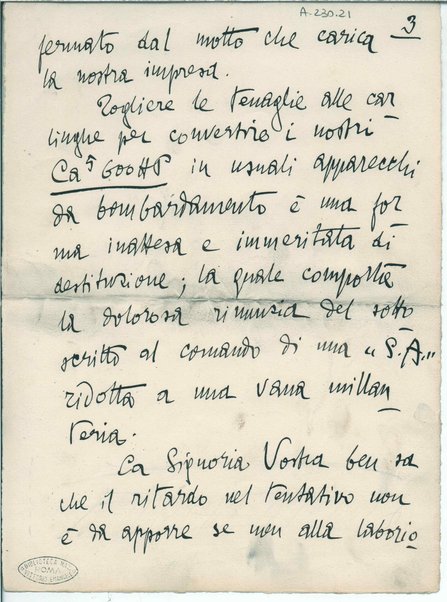 A.230.21
3
fermato dal motto che carica
la nostra impresa.
Togliere le tenaglie alle car
linghe per convertire i nostri
Ca5 600HP in usuali apparecchi
da bombardamento è una for
ma inattesa e immeritata di
destituzione; la quale comporta
la dolorosa rinunzia del sotto
scritto al comando di una "S.A."
ridotta a una vana millan
teria.
La Signoria Vostra ben sa
che il ritardo nel tentativo non
è da apporre se non alla laborio
BIBLIOTECA NAZ
ROMA
VITTORIO EMANUELE